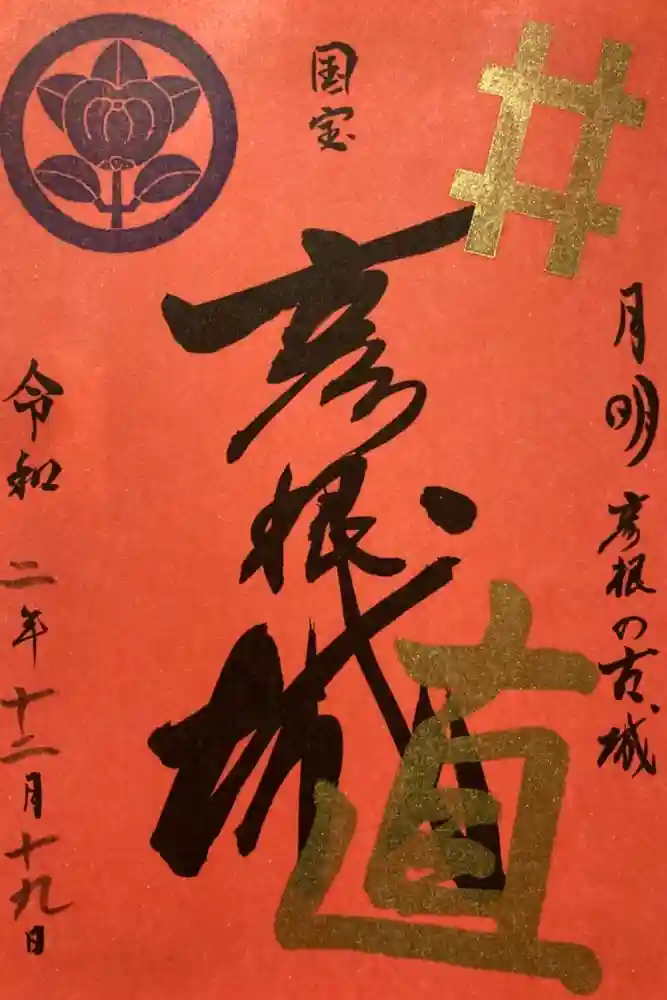 月明
彦根の古城
国宝
井
彦根城
直
令和二年十二月十九日